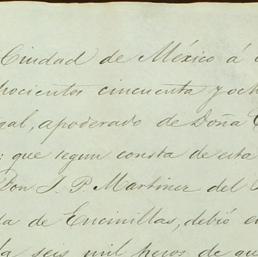 Ciudad de México á
hocientos cincuenta y och
gal, apoderado de Doña
que segun consta de esta
Don J. P. Martinez del
da de Encinillas, debió en
la seis mil pesos de que